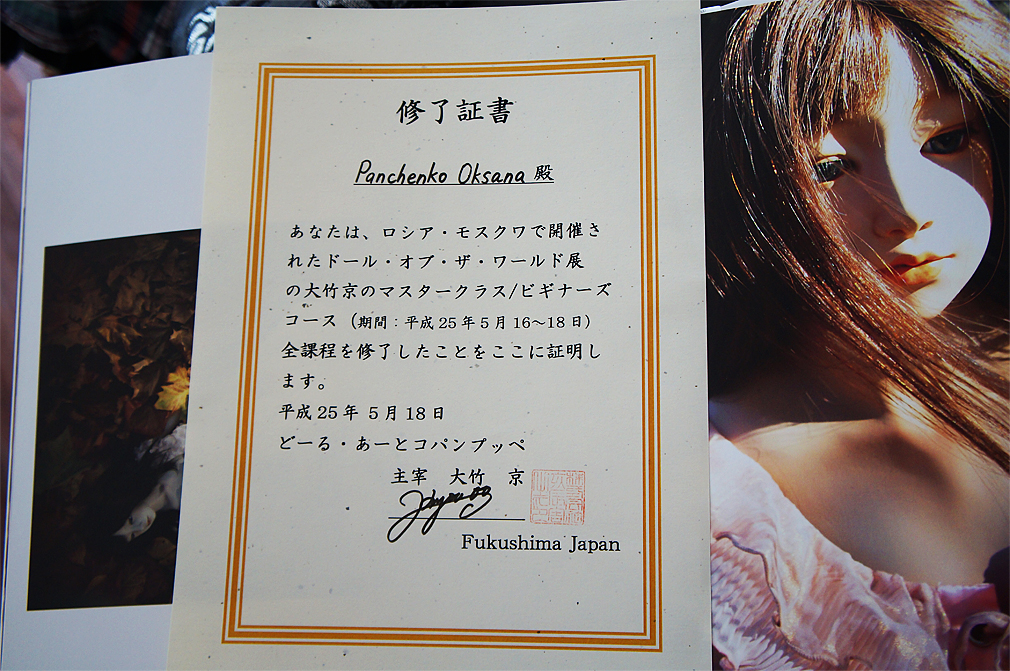 修了証書
Panchenko Oksana 殿
あなたは、ロシア・モスクワで開催さ
れたドール・オブ・ザ・ワールド展
の大竹京のマスタークラス/ビギナーズ
コース（期間：平成25年5月16～18日）
全課程を修了したことをここに証明し
ます。
平成25年 5月18日
どーる・あーとコパンプッペ
主宰 大竹 京
Fukushima Japan